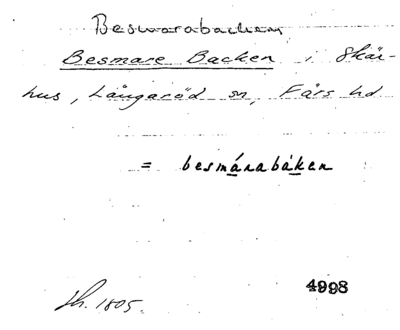 Besmarabacken
Besmare Backen i Skär-
hus, Långaröd sn, Färs hd
= besmárabáken
4998
Sk. 1805.